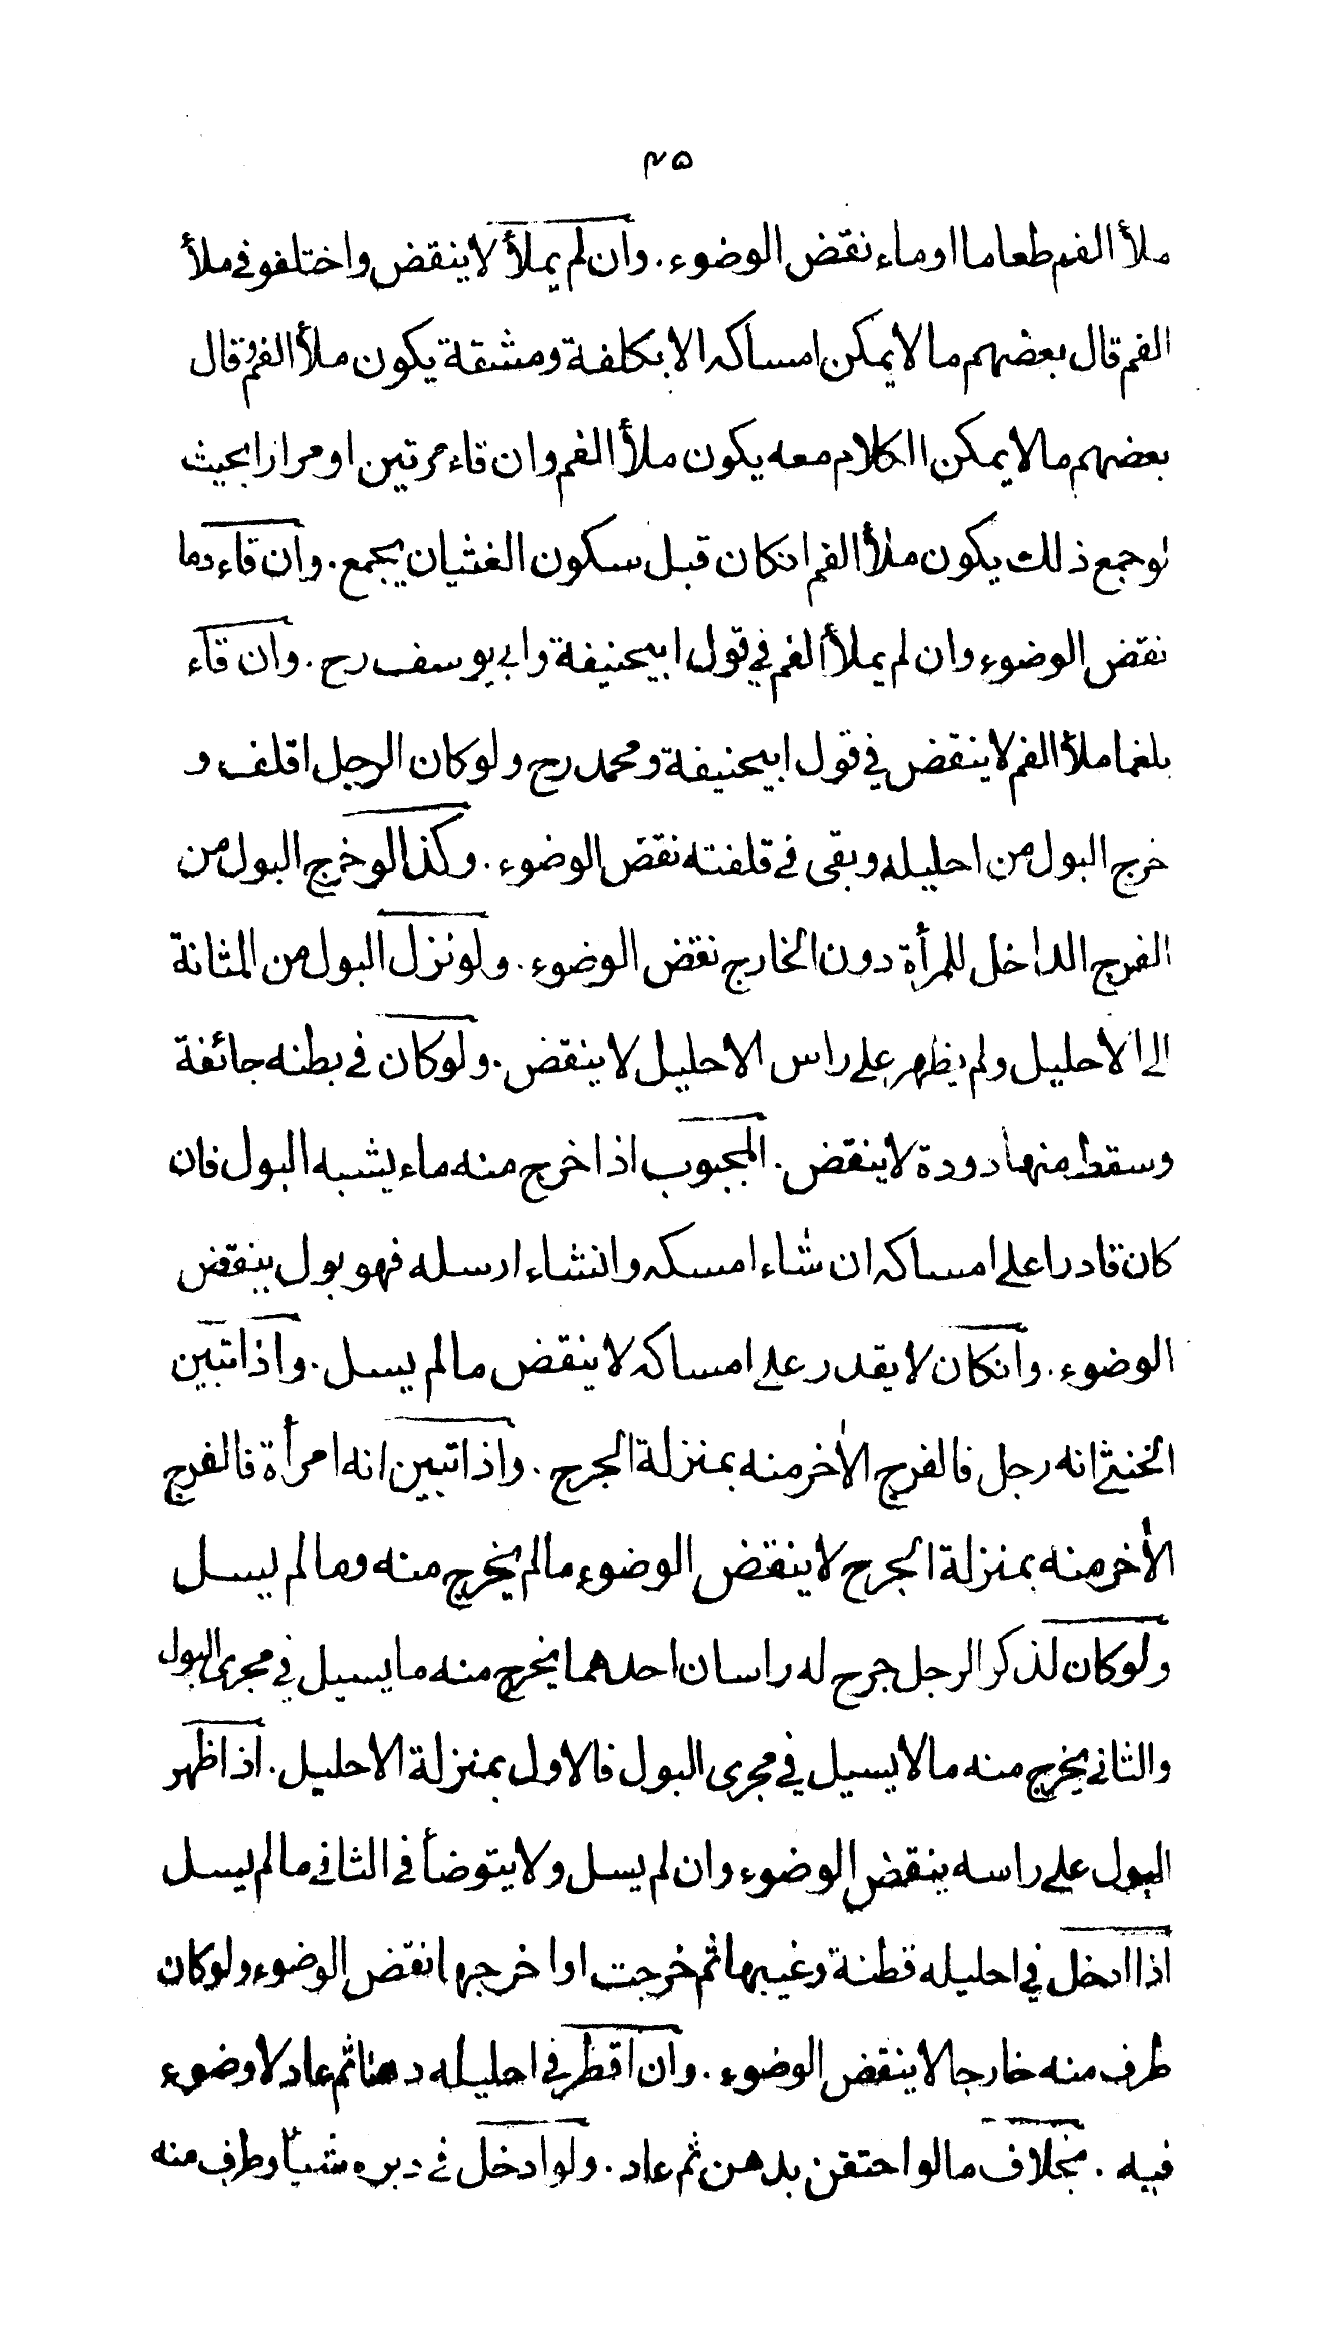 ٣٥
ملأ الفم طعاما او ماء نقض الوضوء . وان لم يملأ لا ينقض واختلفو في ملأ
الفم قال بعضهم ما لا يمكن امساكه الا بكلفة ومشقة يكون ملأ الفم وقال
بعضهم ما لا يمكن الكلام معه يكون ملأ الفم وان قاء مرتين او مرارا بحيث
لو جمع ذلك يكون ملأ الفم انكان قبل سكون الغثيان يجمع . وان قاء دما
نقض الوضوء وان لم يملأ الفم في قول ابيحنيفة وابي يوسف رح . وان قاء
بلغما ملأ الفم لا ينقض في قول ابيحنيفة ومحمد رح ولو كان الرجل اقلف و
خرج البول من احليله وبقى في قلفته نقض الوضوء . وكذا لو خرج البول من
الفرج الداخل للمرأة دون الخارج نقض الوضوء . ولو نزل البول من المثانة
الى الاحليل ولم يظهر على راس الاحليل لا ينقض . ولو كان في بطنه جائفة
وسقط منها دودة لا ينقض . المجبوب اذا خرج منه ماء يشبه البول فان
كان قادرا على امساكه ان شاء امسكه وانشاء ارسله فهو بول ينقض
الوضوء . وانكان لا يقدر على امساكه لا ينقض ما لم يسل . واذا تبين
الخنثى انه رجل فالفرج الاخر منه بمنزلة الجرح . واذا تبين انه امرأة فالفرج
الاخر منه بمنزلة الجرح لا ينقض الوضوء ما لم يخرج منه وما لم يسل
ولو كان لذكر الرجل جرح له راسان احدهما يخرج منه ما يسيل في مجرى البول
والثاني يخرج منه ما لا يسيل في مجرى البول فالاول بمنزلة الاحليل . اذا ظهر
البول على راسه ينقض الوضوء وان لم يسل ولا يتوضأ في الثاني ما لم يسل
اذا ادخل في احليله قطنة وغيبها ثم خرجت او اخرجها نقض الوضوء ولو كان
طرف منه خارجا لا ينقض الوضوء . وان اقطر في احليله دهنا ثم عاد لا وضوء
فيه . بخلاف ما لو احتقن بدهن ثم عاد . ولو ادخل في دبره شيأ وطرف منه